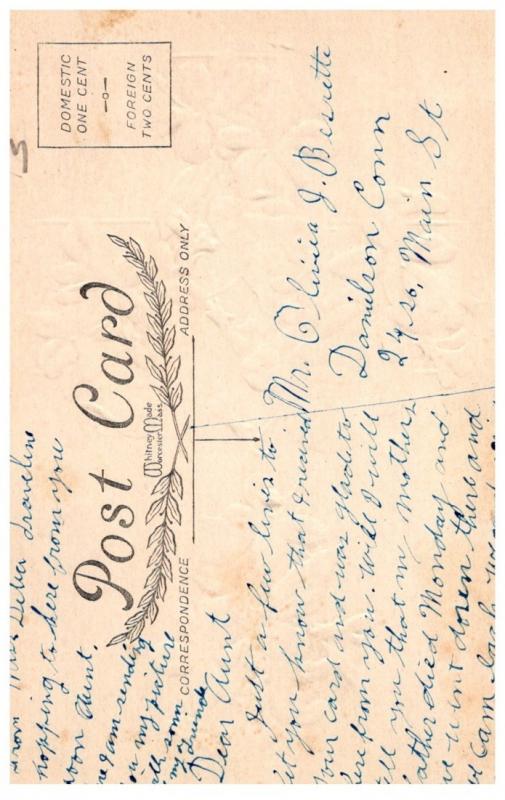 DOMESTIC
ONE CENT
—o—
FOREIGN
TWO CENTS
Post Card
Whitney Made
Worcester Mass.
CORRESPONDENCE
ADDRESS ONLY
Mr. Olivia J. Bessette
Danielson Conn
24 so, Main St
Dear Aunt
Just a few lines to
let you know that I receive
your card and was glad to
here from you. Will I will
tell you that my mothers
father died Monday and
we went down there and
we Cam back
hopping to here from you
soon Aunt.
sending
my picture
with som
my friends